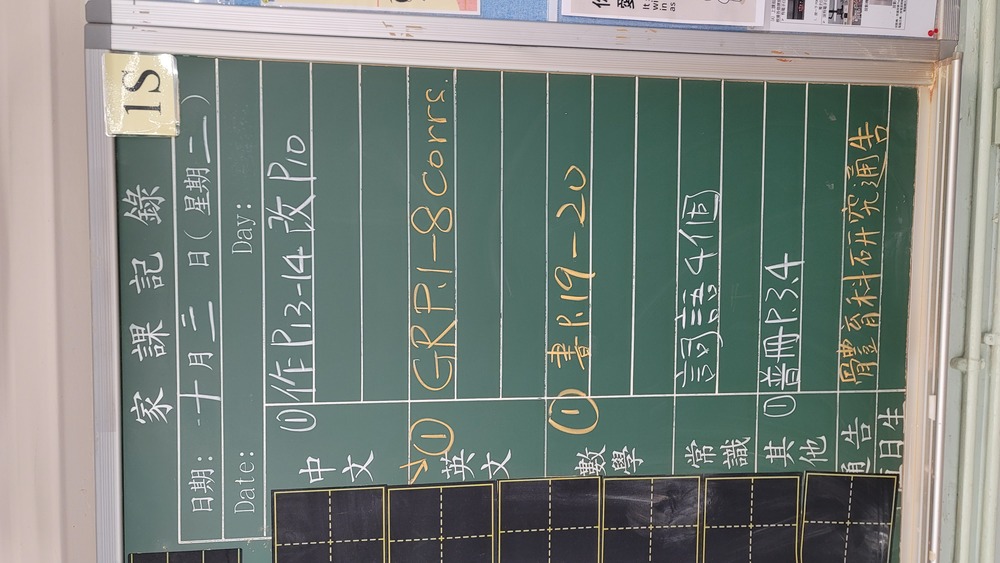 1S
家課記錄
日期: 十月三日(星期二)
Date: Day:
中文 ① 作P13-14 改P10
英文 ① GR P.1-8 corrs.
數學 ① 書P.19-20
常識 詞語4個
其他 ① 普冊P.3.4
告 體育科研究通告
日生